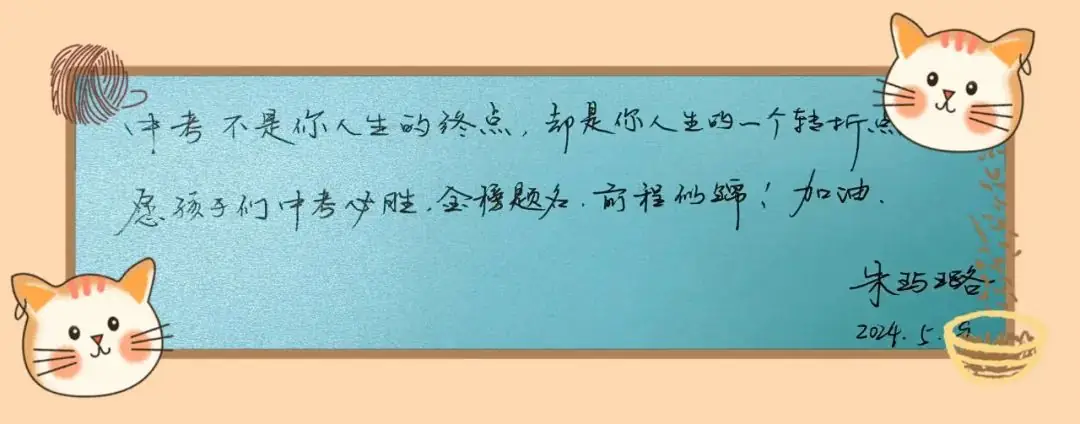 中考不是你人生的终点,却是你人生的一个转折点
愿孩子们中考必胜.金榜题名.前程似锦!加油.
朱玙璐
2024.5.